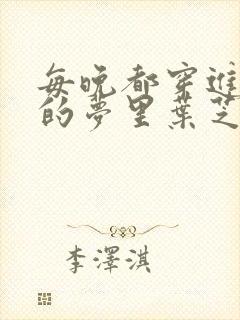 每晚都穿進
的夢里葉芝
李澤淇